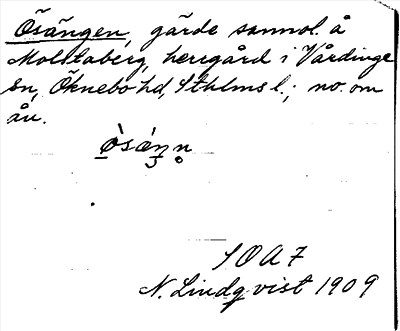 Ösängen, gärde sannol. å
Molstaberg, herrgård i Vårdinge
sn, Öknebo hd, Sthlms l.; no. om
ån.
ò̱sæ̀ŋn̥
SOA 7
N. Lindqvist 1909